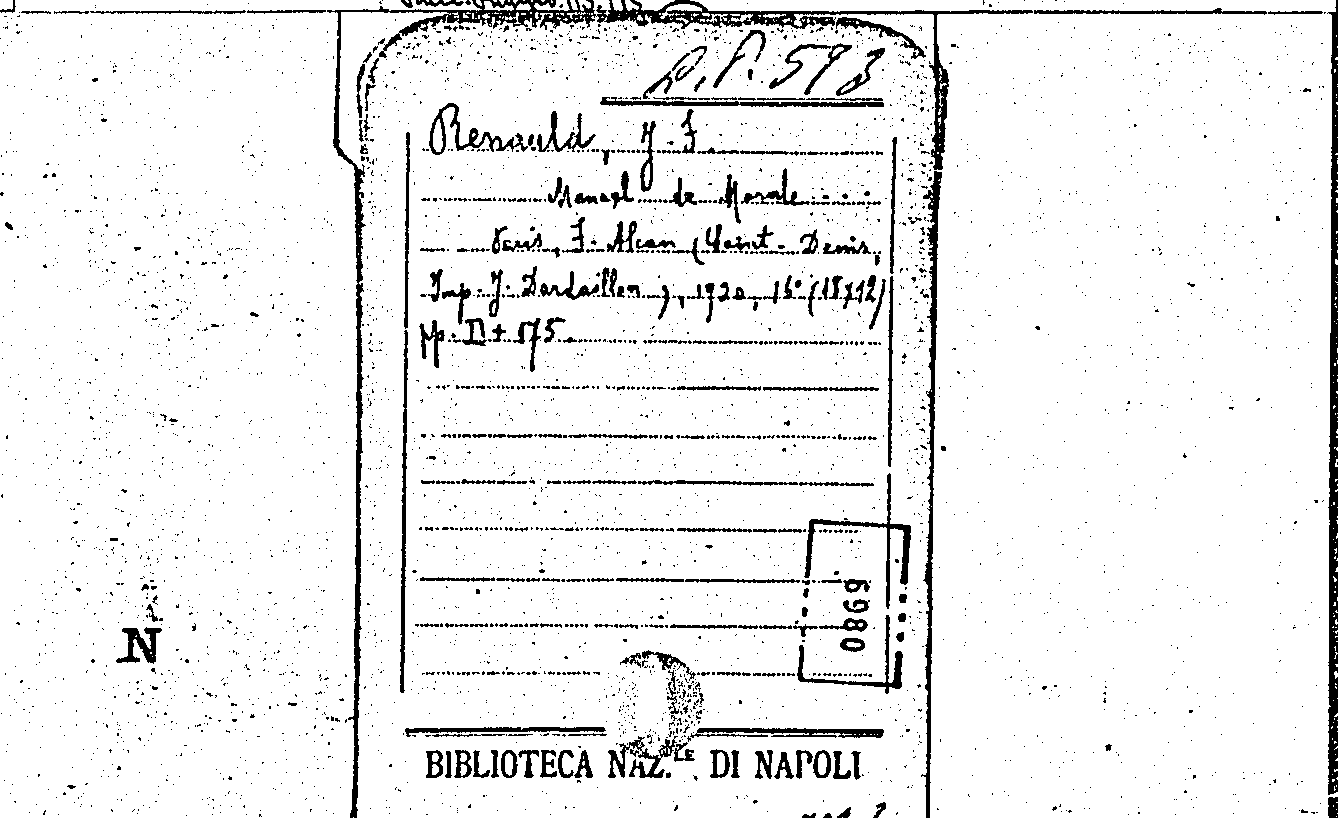 P.P. 593
Renauld, J. F.
Manuel de Morale ...
Paris, F. Alcan (Saint-Denis,
Imp. J. Dardaillon), 1920, 16° (18x12)
pp. II + 175.
6980
N
BIBLIOTECA NAZ.LE DI NAPOLI